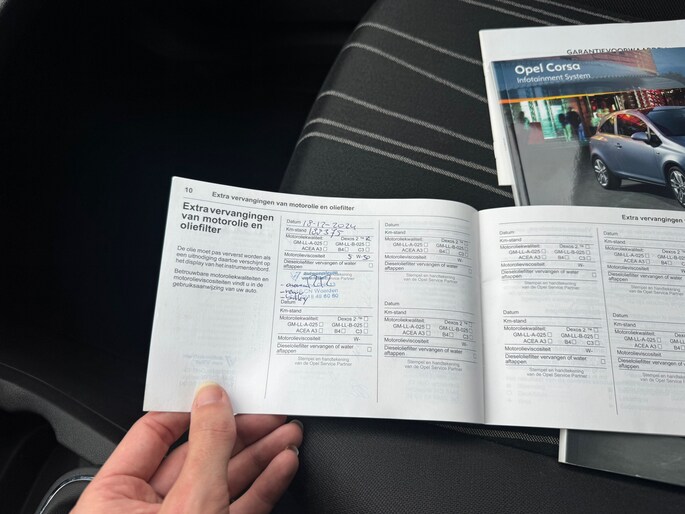 GARANTIEVOORWAARD
Opel Corsa
Infotainment System
10 Extra vervangingen van motorolie en oliefilter
Extra vervangingen
van motorolie en
oliefilter
De olie moet pas ververst worden als
een uitnodiging daartoe verschijnt op
het display van het instrumentenbord.
Betrouwbare motoroliekwaliteiten en
motorolieviscositeiten vindt u in de
gebruiksaanwijzing van uw auto.
Datum 18-12-2024
Km-stand
Motoroliekwaliteit: Dexos 2 ™
GM-LL-A-025 GM-LL-B-025
ACEA A3 B4 C3
Motorolieviscositeit 5 W-30
Dieseloliefilter vervangen of water
aftappen
Woerden
Datum
Km-stand
Motoroliekwaliteit: Dexos 2 ™
GM-LL-A-025 GM-LL-B-025
ACEA A3 B4 C3
Motorolieviscositeit W-
Dieseloliefilter vervangen of water
aftappen
Stempel en handtekening
van de Opel Service Partner
Datum
Km-stand
Motoroliekwaliteit: Dexos 2 ™
GM-LL-A-025 GM-LL-B-025
ACEA A3 B4 C3
Motorolieviscositeit W-
Dieseloliefilter vervangen of water
aftappen
Stempel en handtekening
van de Opel Service Partner
Datum
Km-stand
Motoroliekwaliteit: Dexos 2 ™
GM-LL-A-025 GM-LL-B-025
ACEA A3 B4 C3
Motorolieviscositeit W-
Dieseloliefilter vervangen of water
aftappen
Stempel en handtekening
van de Opel Service Partner
Extra vervangingen
Datum
Km-stand
Motoroliekwaliteit: Dexos 2 ™
GM-LL-A-025 GM-LL-B-025
ACEA A3 B4 C3
Motorolieviscositeit W-
Dieseloliefilter vervangen of water
aftappen
Stempel en handtekening
van de Opel Service Partner
Datum
Km-stand
Motoroliekwaliteit: Dexos 2 ™
GM-LL-A-025 GM-LL-B-025
ACEA A3 B4 C3
Motorolieviscositeit W-
Dieseloliefilter vervangen of water
aftappen
Stempel en handtekening
van de Opel Service Partner
Datum
Km-stand
Motoroliekwaliteit:
GM-LL-A-025
ACEA A3
Motorolieviscositeit
Dieseloliefilter vervangen
aftappen
Datum
Km-stand
Motoroliekwaliteit:
GM-LL-A-025
ACEA A3
Motorolieviscositeit
Dieseloliefilter vervangen
aftappen